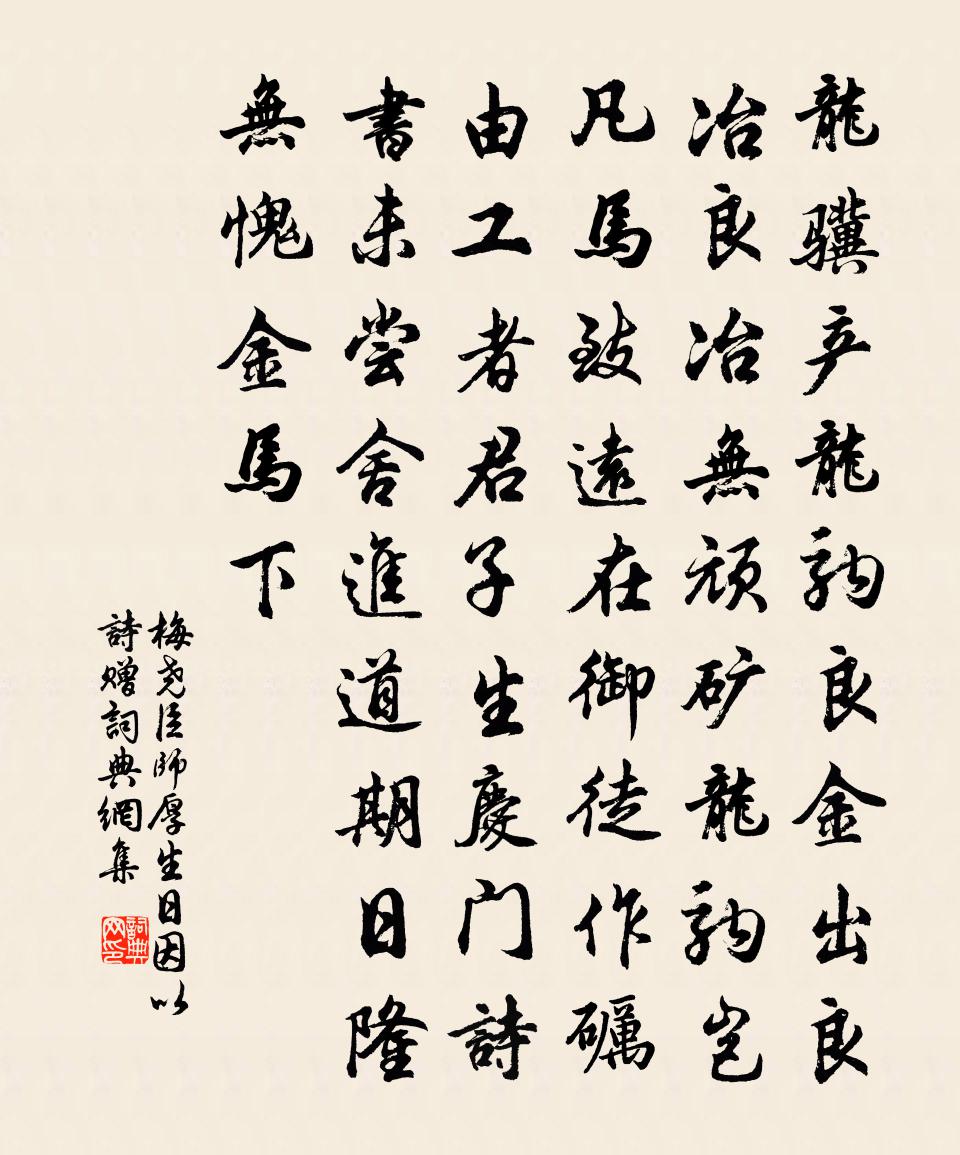 龍骥产龍駒良金出良
冶良冶無頑矿龍駒岂
凡馬致遠在御徒作礪
由工者君子生慶门詩
書未尝舍進道期日隆
無愧金馬下
梅尧臣師厚生日因以
詩赠詞典網集
詞典网印